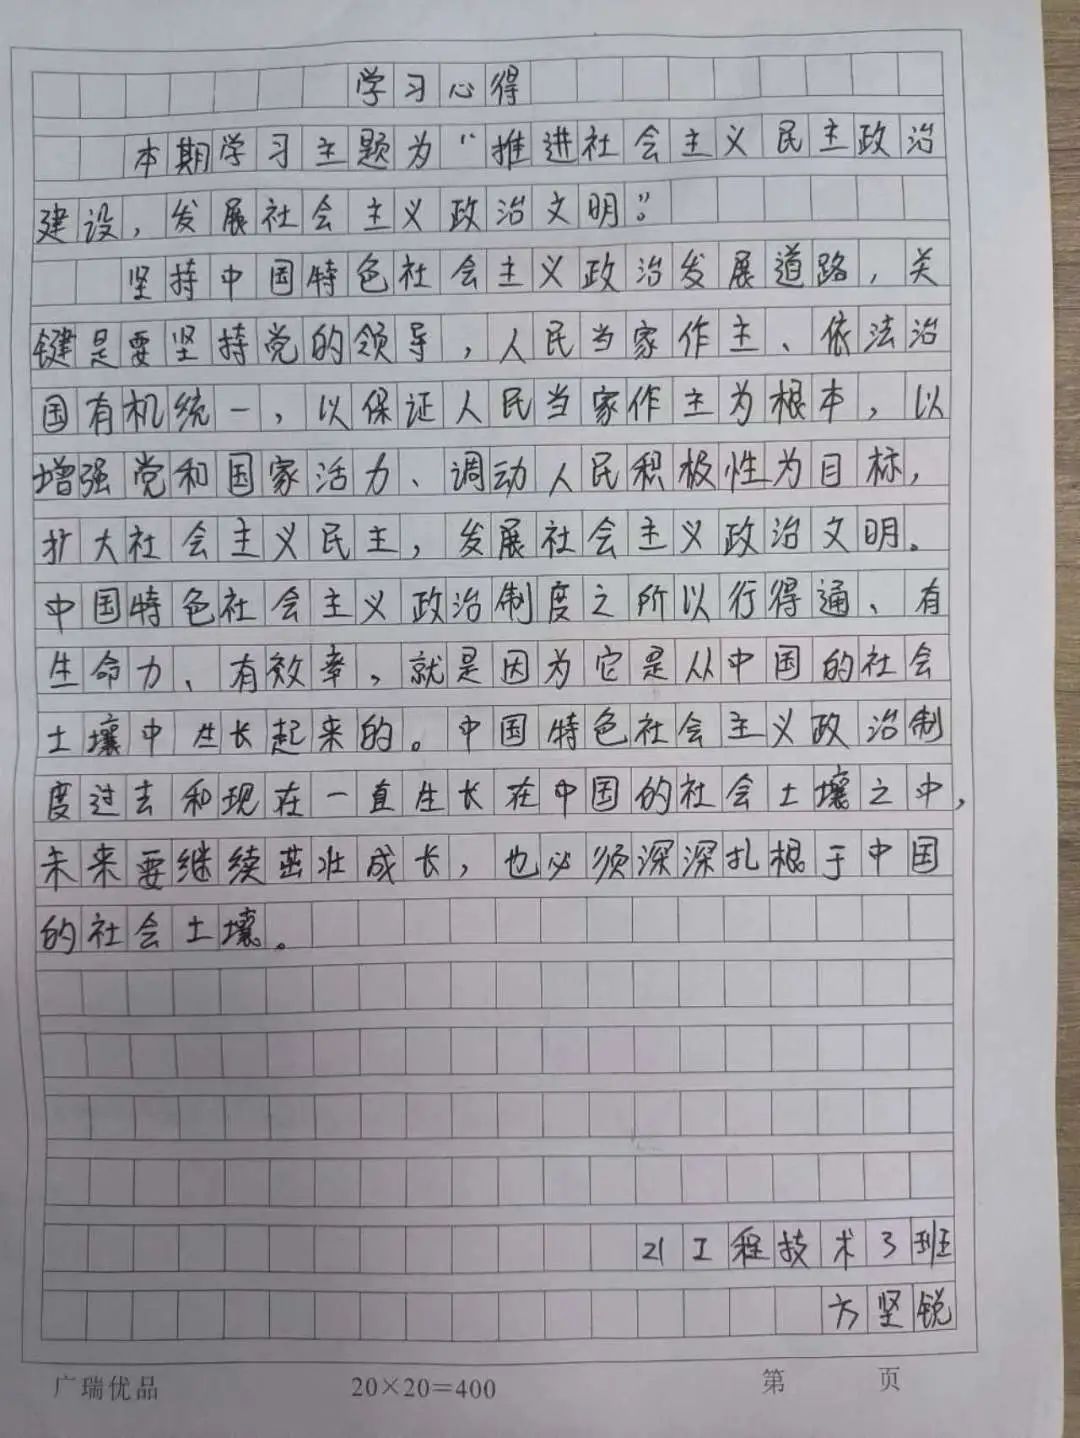 学习心得
本期学习主题为“推进社会主义民主政治
建设,发展社会主义政治文明。”
坚持中国特色社会主义政治发展道路,关
键是要坚持党的领导,人民当家作主、依法治
国有机统一,以保证人民当家作主为根本,以
增强党和国家活力、调动人民积极性为目标,
扩大社会主义民主,发展社会主义政治文明。
中国特色社会主义政治制度之所以行得通、有
生命力、有效率,就是因为它是从中国的社会
土壤中生长起来的。中国特色社会主义政治制
度过去和现在一直生长在中国的社会土壤之中,
未来要继续茁壮成长,也必须深深扎根于中国
的社会土壤。
21工程技术3班
方坚锐
广瑞优品 20×20=400 第 页